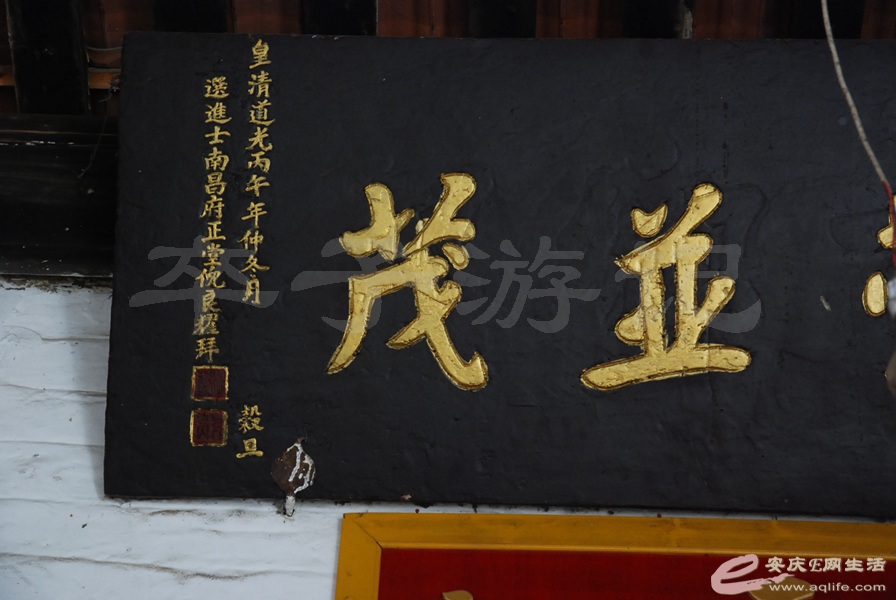 並茂
皇清道光丙午年仲冬月
穀旦
選進士南昌府正堂倪良耀拜
本子游记
安庆E网生活
www.aqlife.com